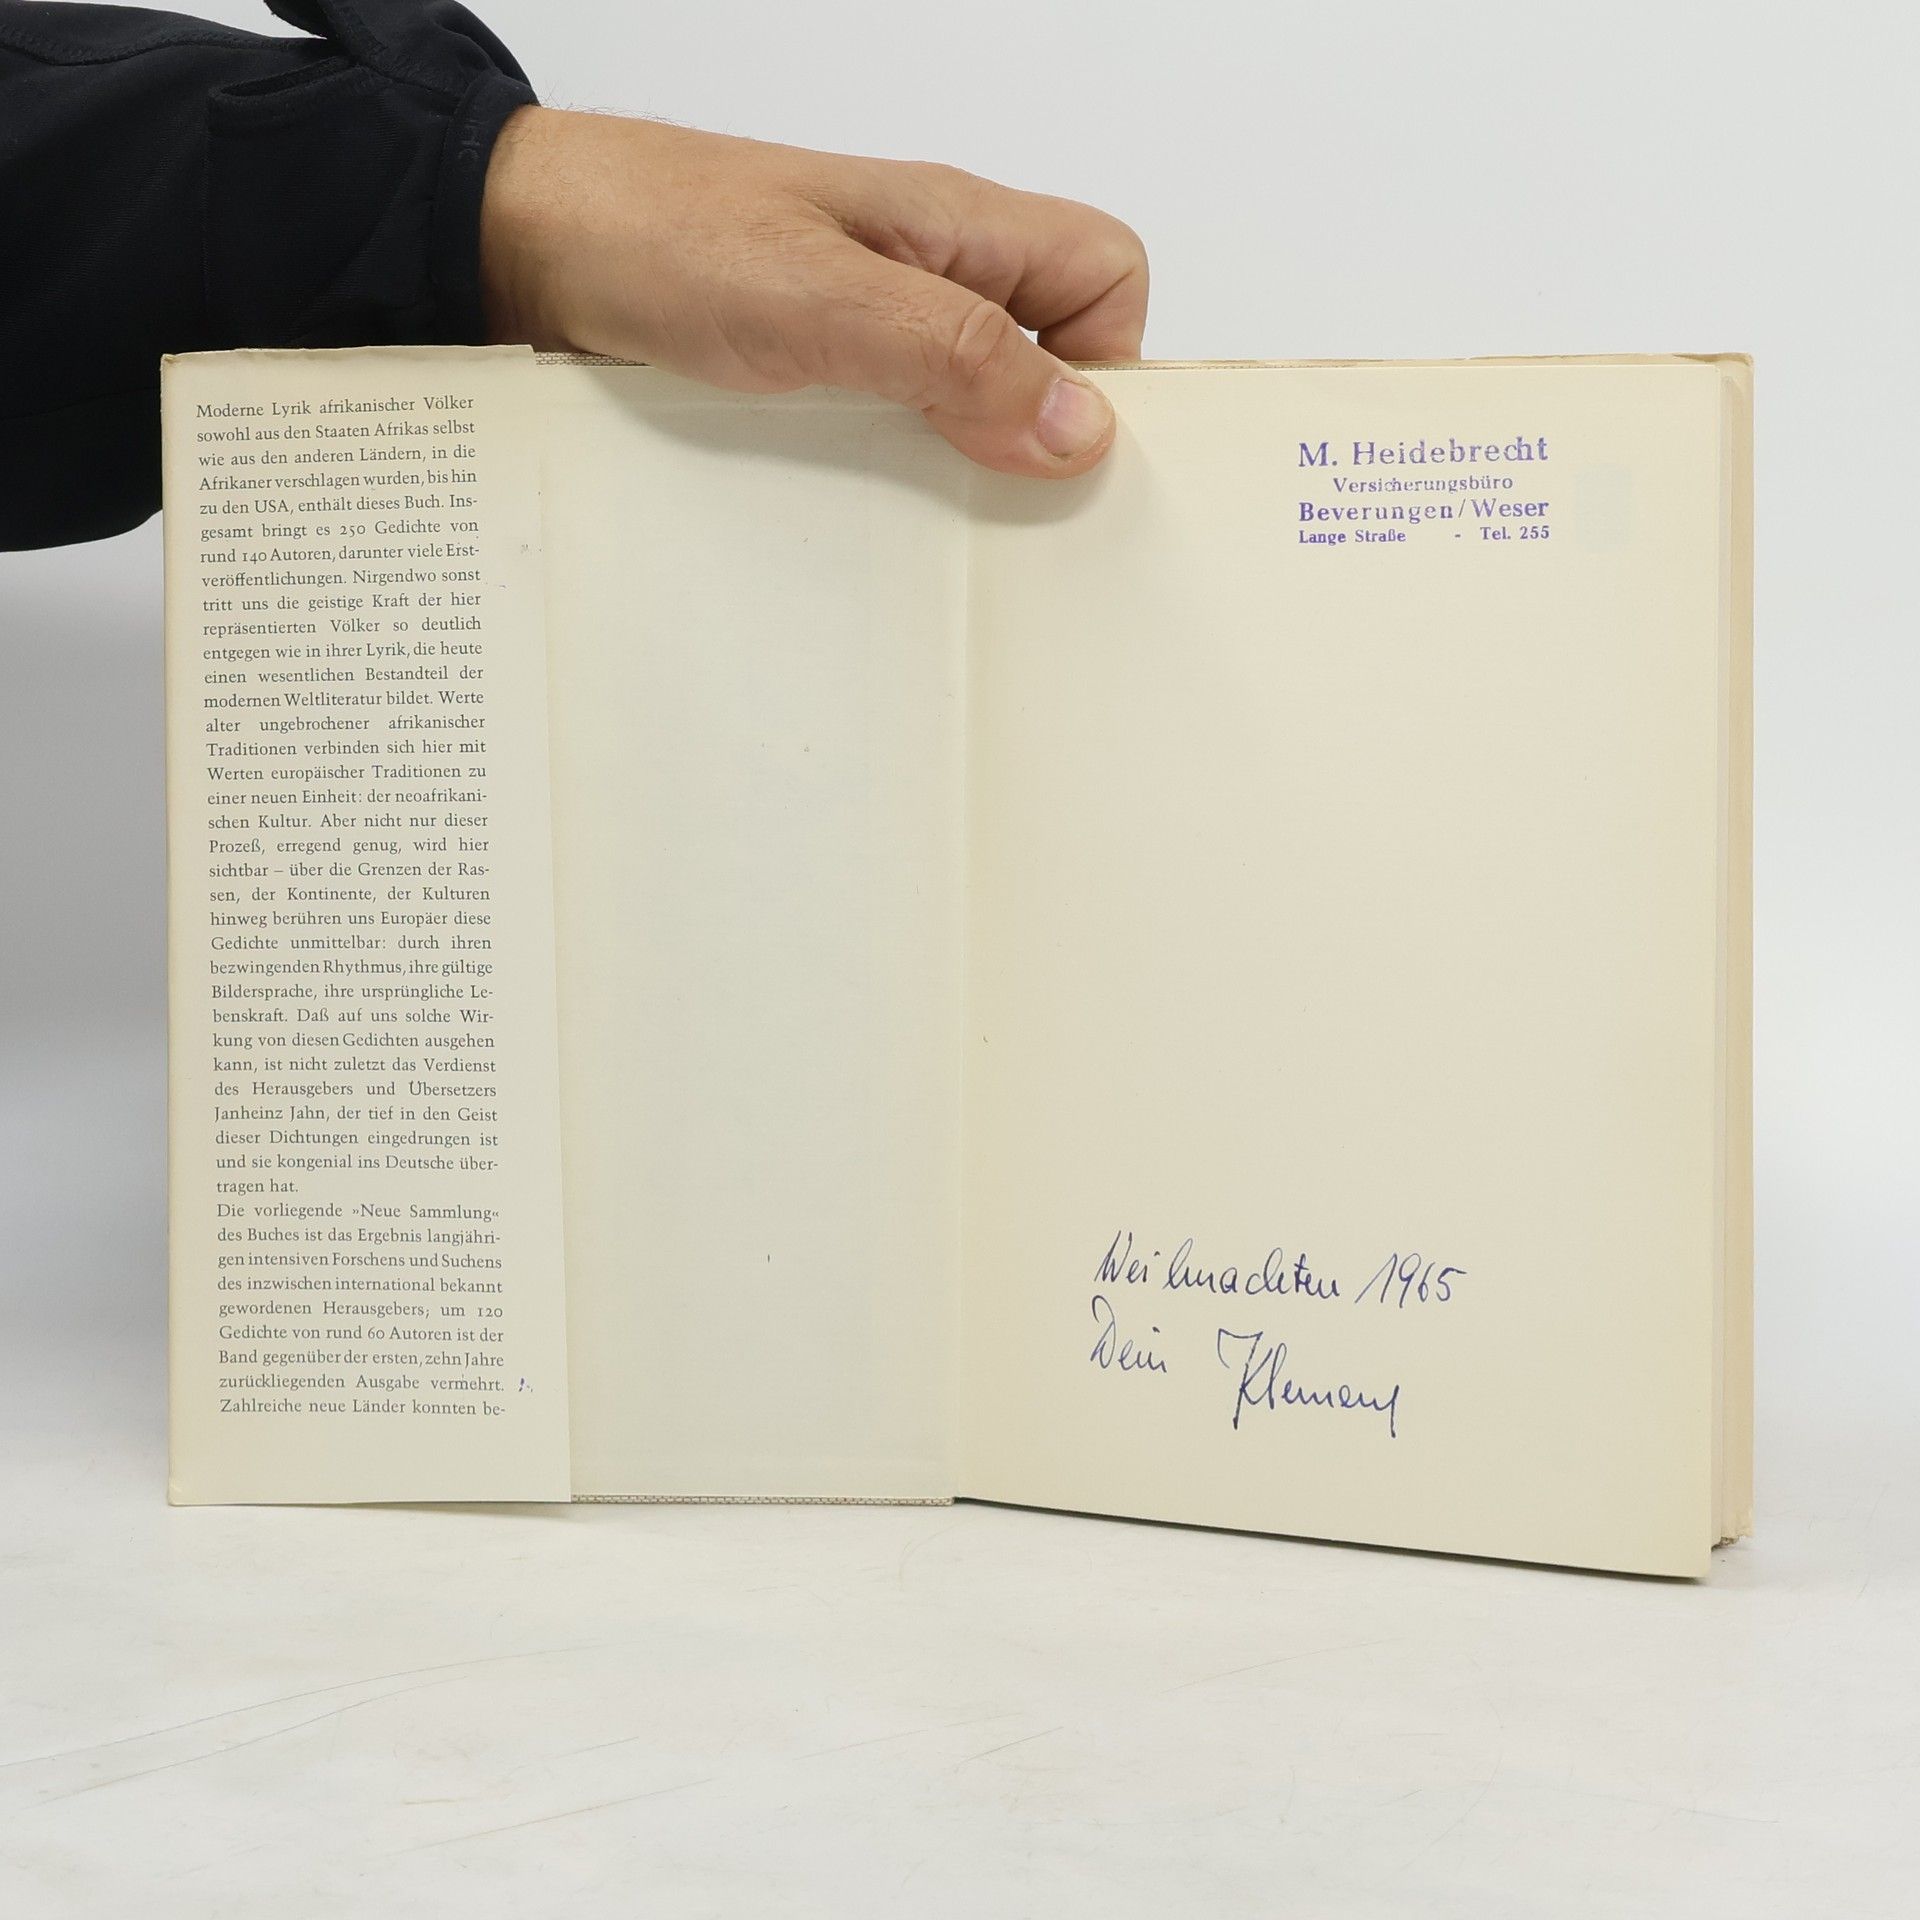 Moderne Lyrik afrikanischer Völker
sowohl aus den Staaten Afrikas selbst
wie aus den anderen Ländern, in die
Afrikaner verschlagen wurden, bis hin
zu den USA, enthält dieses Buch. Ins-
gesamt bringt es 250 Gedichte von
rund 140 Autoren, darunter viele Erst-
veröffentlichungen. Nirgendwo sonst
tritt uns die geistige Kraft der hier
repräsentierten Völker so deutlich
entgegen wie in ihrer Lyrik, die heute
einen wesentlichen Bestandteil der
modernen Weltliteratur bildet. Werte
alter ungebrochener afrikanischer
Traditionen verbinden sich hier mit
Werten europäischer Traditionen zu
einer neuen Einheit: der neoafrikani-
schen Kultur. Aber nicht nur dieser
Prozeß, erregend genug, wird hier
sichtbar – über die Grenzen der Ras-
sen, der Kontinente, der Kulturen
hinweg berühren uns Europäer diese
Gedichte unmittelbar: durch ihren
bezwingenden Rhythmus, ihre gültige
Bildersprache, ihre ursprüngliche Le-
benskraft. Daß auf uns solche Wir-
kung von diesen Gedichten ausgehen
kann, ist nicht zuletzt das Verdienst
des Herausgebers und Übersetzers
Janheinz Jahn, der tief in den Geist
dieser Dichtungen eingedrungen ist
und sie kongenial ins Deutsche über-
tragen hat.
Die vorliegende »Neue Sammlung«
des Buches ist das Ergebnis langjähri-
gen intensiven Forschens und Suchens
des inzwischen international bekannt
gewordenen Herausgebers; um 120
Gedichte von rund 60 Autoren ist der
Band gegenüber der ersten, zehn Jahre
zurückliegenden Ausgabe vermehrt.
Zahlreiche neue Länder konnten be-
M. Heidebrecht
Versicherungsbüro
Beverungen/Weser
Lange Straße - Tel. 255
Weihnachten 1965
Dein Klemens